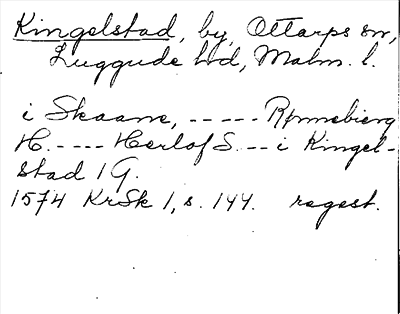 Kingelstad, by, Ottarps sn,
Luggude hd, Malm. l.
i Skaane, ----- Rønnebierg
H. ---- Herlof S. -- i Kingel-
stad 1 G.
1574 KrSk 1, s. 144. regest.